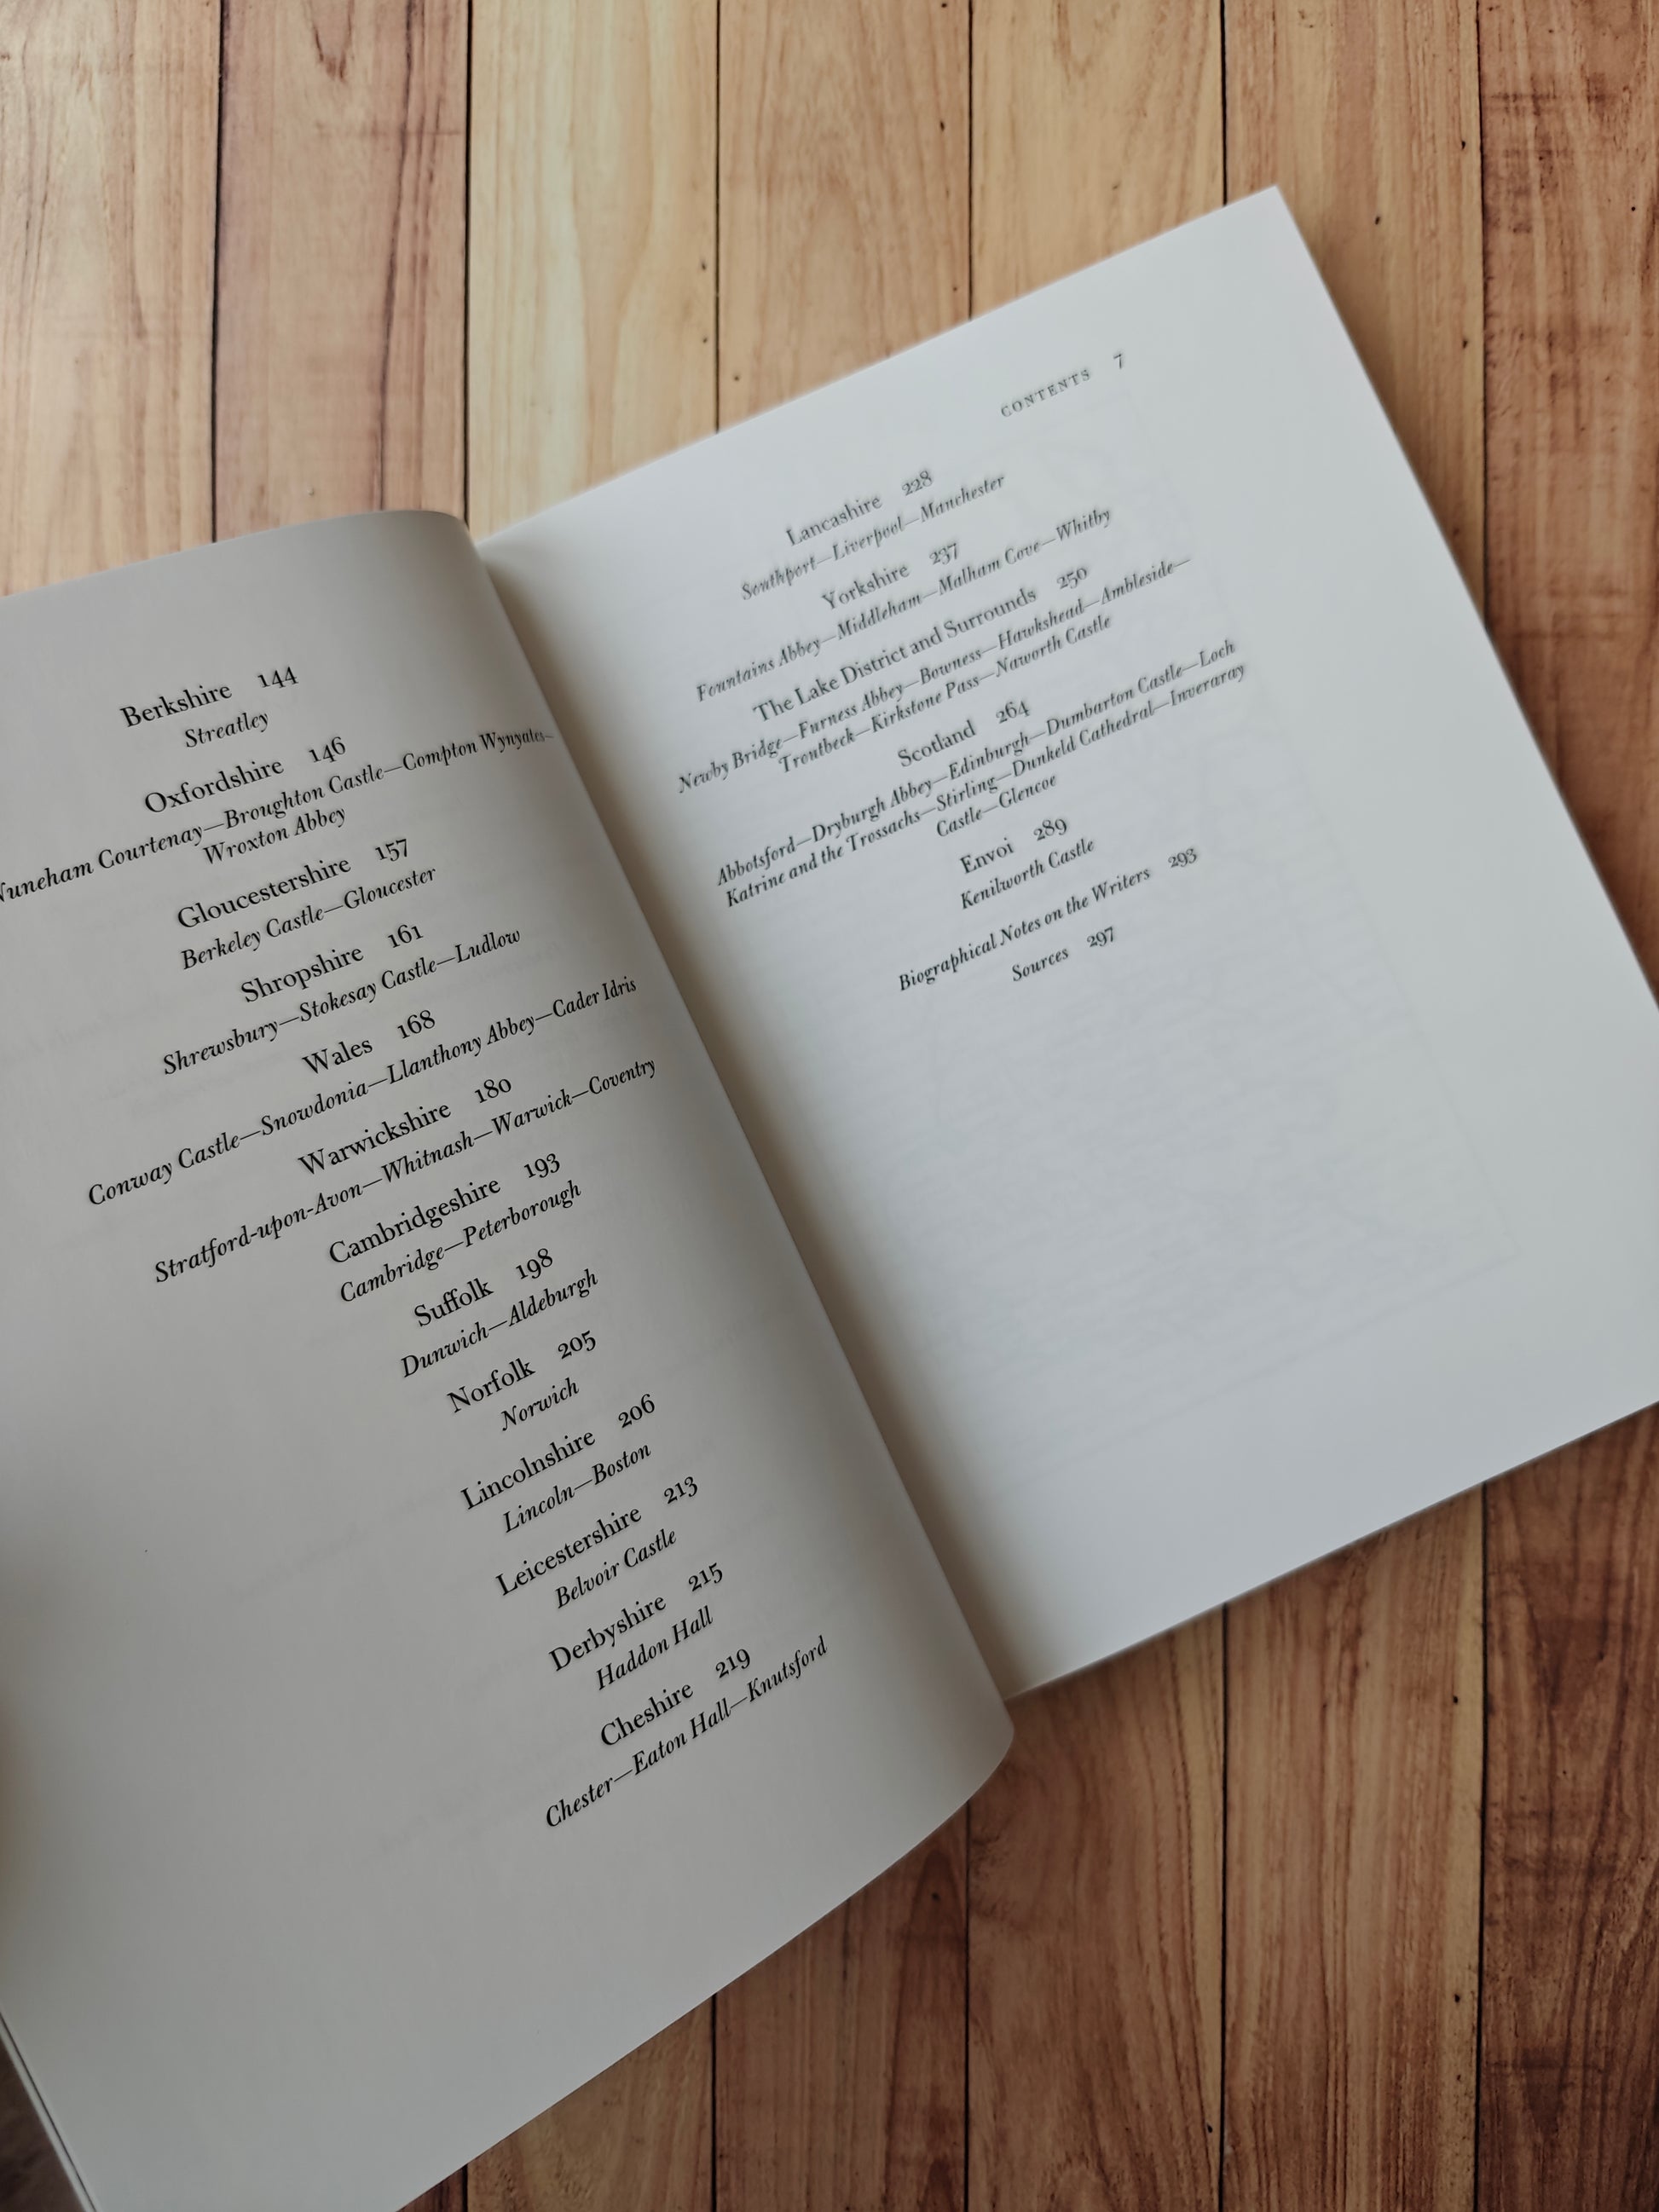 Berkshire 144
Streatley
Oxfordshire 146
Nuneham Courtenay—Broughton Castle—Compton Wynyates—
Wroxton Abbey
Gloucestershire 157
Berkeley Castle—Gloucester
Shropshire 161
Shrewsbury—Stokesay Castle—Ludlow
Wales 168
Conway Castle—Snowdonia—Llanthony Abbey—Cader Idris
Warwickshire 180
Stratford-upon-Avon—Whitnash—Warwick—Coventry
Cambridgeshire 193
Cambridge—Peterborough
Suffolk 198
Dunwich—Aldeburgh
Norfolk 205
Norwich
Lincolnshire 206
Lincoln—Boston
Leicestershire 213
Belvoir Castle
Derbyshire 215
Haddon Hall
Cheshire 219
Chester—Eaton Hall—Knutsford
CONTENTS 7
Lancashire 228
Southport—Liverpool—Manchester
Yorkshire 237
Fountains Abbey—Middleham—Malham Cove—Whitby
The Lake District and Surrounds 250
Newby Bridge—Furness Abbey—Bowness—Hawkshead—Ambleside—
Troutbeck—Kirkstone Pass—Naworth Castle
Scotland 264
Abbotsford—Dryburgh Abbey—Edinburgh—Dumbarton Castle—Loch
Katrine and the Trossachs—Stirling—Dunkeld Cathedral—Inveraray
Castle—Glencoe
Envoi 289
Kenilworth Castle
Biographical Notes on the Writers 293
Sources 297